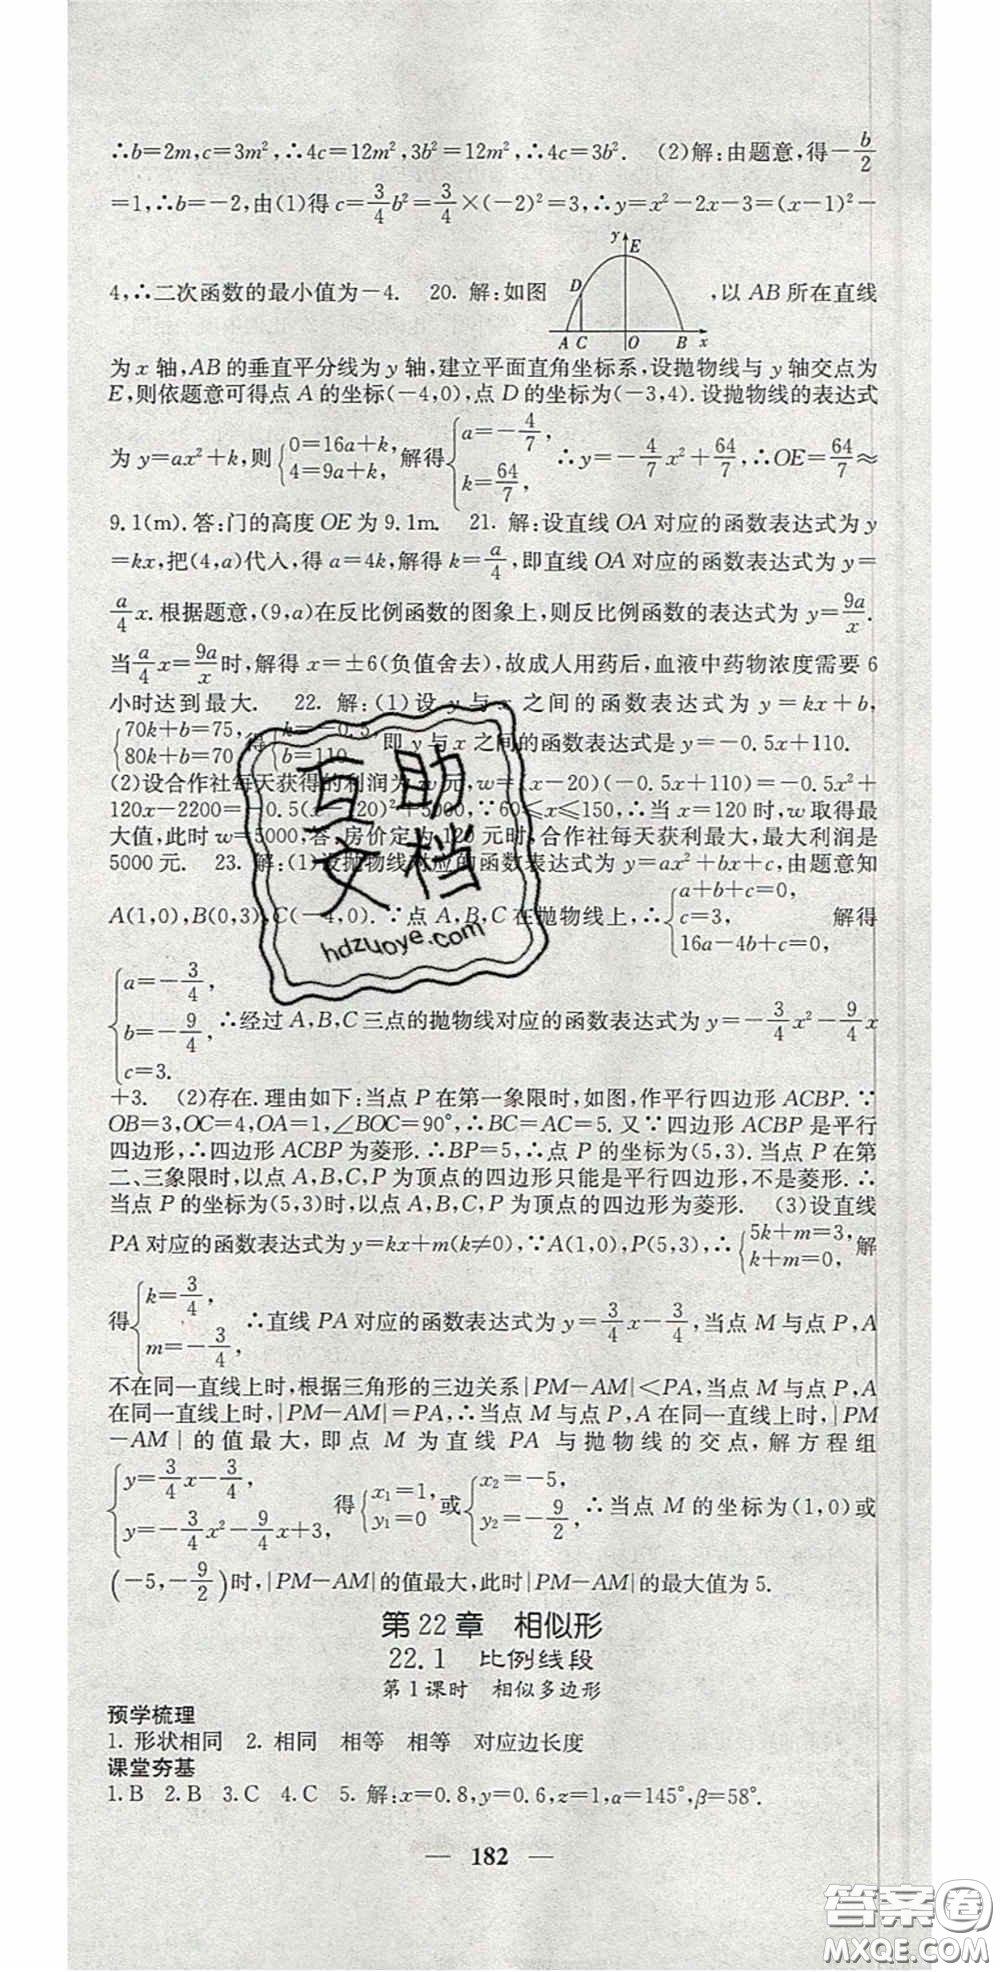 ∴b=2m,c=3m²,∴4c=12m²,3b²=12m²,∴4c=3b². (2)解:由题意,得-b/2
=1,∴b=-2,由(1)得c=3/4b²=3/4×(-2)²=3,∴y=x²-2x-3=(x-1)²-
4,∴二次函数的最小值为-4. 20. 解:如图 y E D A C O B x ,以AB所在直线
为x轴,AB的垂直平分线为y轴,建立平面直角坐标系,设抛物线与y轴交点为
E,则依题意可得点A的坐标(-4,0),点D的坐标为(-3,4).设抛物线的表达式
为y=ax²+k,则{0=16a+k, 4=9a+k, 解得{a=-4/7, k=64/7, ∴y=-4/7x²+64/7,∴OE=64/7≈
9.1(m).答:门的高度OE为9.1m. 21. 解:设直线OA对应的函数表达式为y
=kx,把(4,a)代入,得a=4k,解得k=a/4,即直线OA对应的函数表达式为y=
a/4x.根据题意,(9,a)在反比例函数的图象上,则反比例函数的表达式为y=9a/x.
当a/4x=9a/x时,解得x=±6(负值舍去),故成人用药后,血液中药物浓度需要6
小时达到最大. 22. 解:(1)设y与x之间的函数表达式为y=kx+b,
{70k+b=75, 80k+b=70, 得{k=-0.5, b=110, 即y与x之间的函数表达式是y=-0.5x+110.
(2)设合作社每天获得的利润为w元,w=(x-20)(-0.5x+110)=-0.5x²+
120x-2200=-0.5(x-120)²+5000,∵60≤x≤150,∴当x=120时,w取得最
大值,此时w=5000,答:房价定为120元时,合作社每天获利最大,最大利润是
5000元. 23. 解:(1)设抛物线对应的函数表达式为y=ax²+bx+c,由题意知
A(1,0),B(0,3),C(-4,0).∵点A,B,C在抛物线上,∴{a+b+c=0, c=3, 16a-4b+c=0, 解得
{a=-3/4, b=-9/4, c=3. ∴经过A,B,C三点的抛物线对应的函数表达式为y=-3/4x²-9/4x
+3. (2)存在.理由如下:当点P在第一象限时,如图,作平行四边形ACBP.∵
OB=3,OC=4,OA=1,∠BOC=90°,∴BC=AC=5.又∵四边形ACBP是平行
四边形,∴四边形ACBP为菱形.∴BP=5,∴点P的坐标为(5,3).当点P在第
二、三象限时,以点A,B,C,P为顶点的四边形只能是平行四边形,不是菱形.∴
当点P的坐标为(5,3)时,以点A,B,C,P为顶点的四边形为菱形. (3)设直线
PA对应的函数表达式为y=kx+m(k≠0),∵A(1,0),P(5,3),∴{5k+m=3, k+m=0, 解
得{k=3/4, m=-3/4, ∴直线PA对应的函数表达式为y=3/4x-3/4,当点M与点P,A
不在同一直线上时,根据三角形的三边关系|PM-AM|<PA,当点M与点P,A
在同一直线上时,|PM-AM|=PA,∴当点M与点P,A在同一直线上时,|PM
-AM|的值最大,即点M为直线PA与抛物线的交点,解方程组
{y=3/4x-3/4, y=-3/4x²-9/4x+3, 得{x₁=1, y₁=0 或{x₂=-5, y₂=-9/2, ∴当点M的坐标为(1,0)或
(-5,-9/2)时,|PM-AM|的值最大,此时|PM-AM|的最大值为5.
第22章 相似形
22.1 比例线段
第1课时 相似多边形
预学梳理
1. 形状相同 2. 相同 相等 相等 对应边长度
课堂夯基
1. B 2. B 3. C 4. C 5. 解:x=0.8,y=0.6,z=1,α=145°,β=58°.
— 182 —
互助
文档
hdzuoye.com
答案圈
MXQE.COM